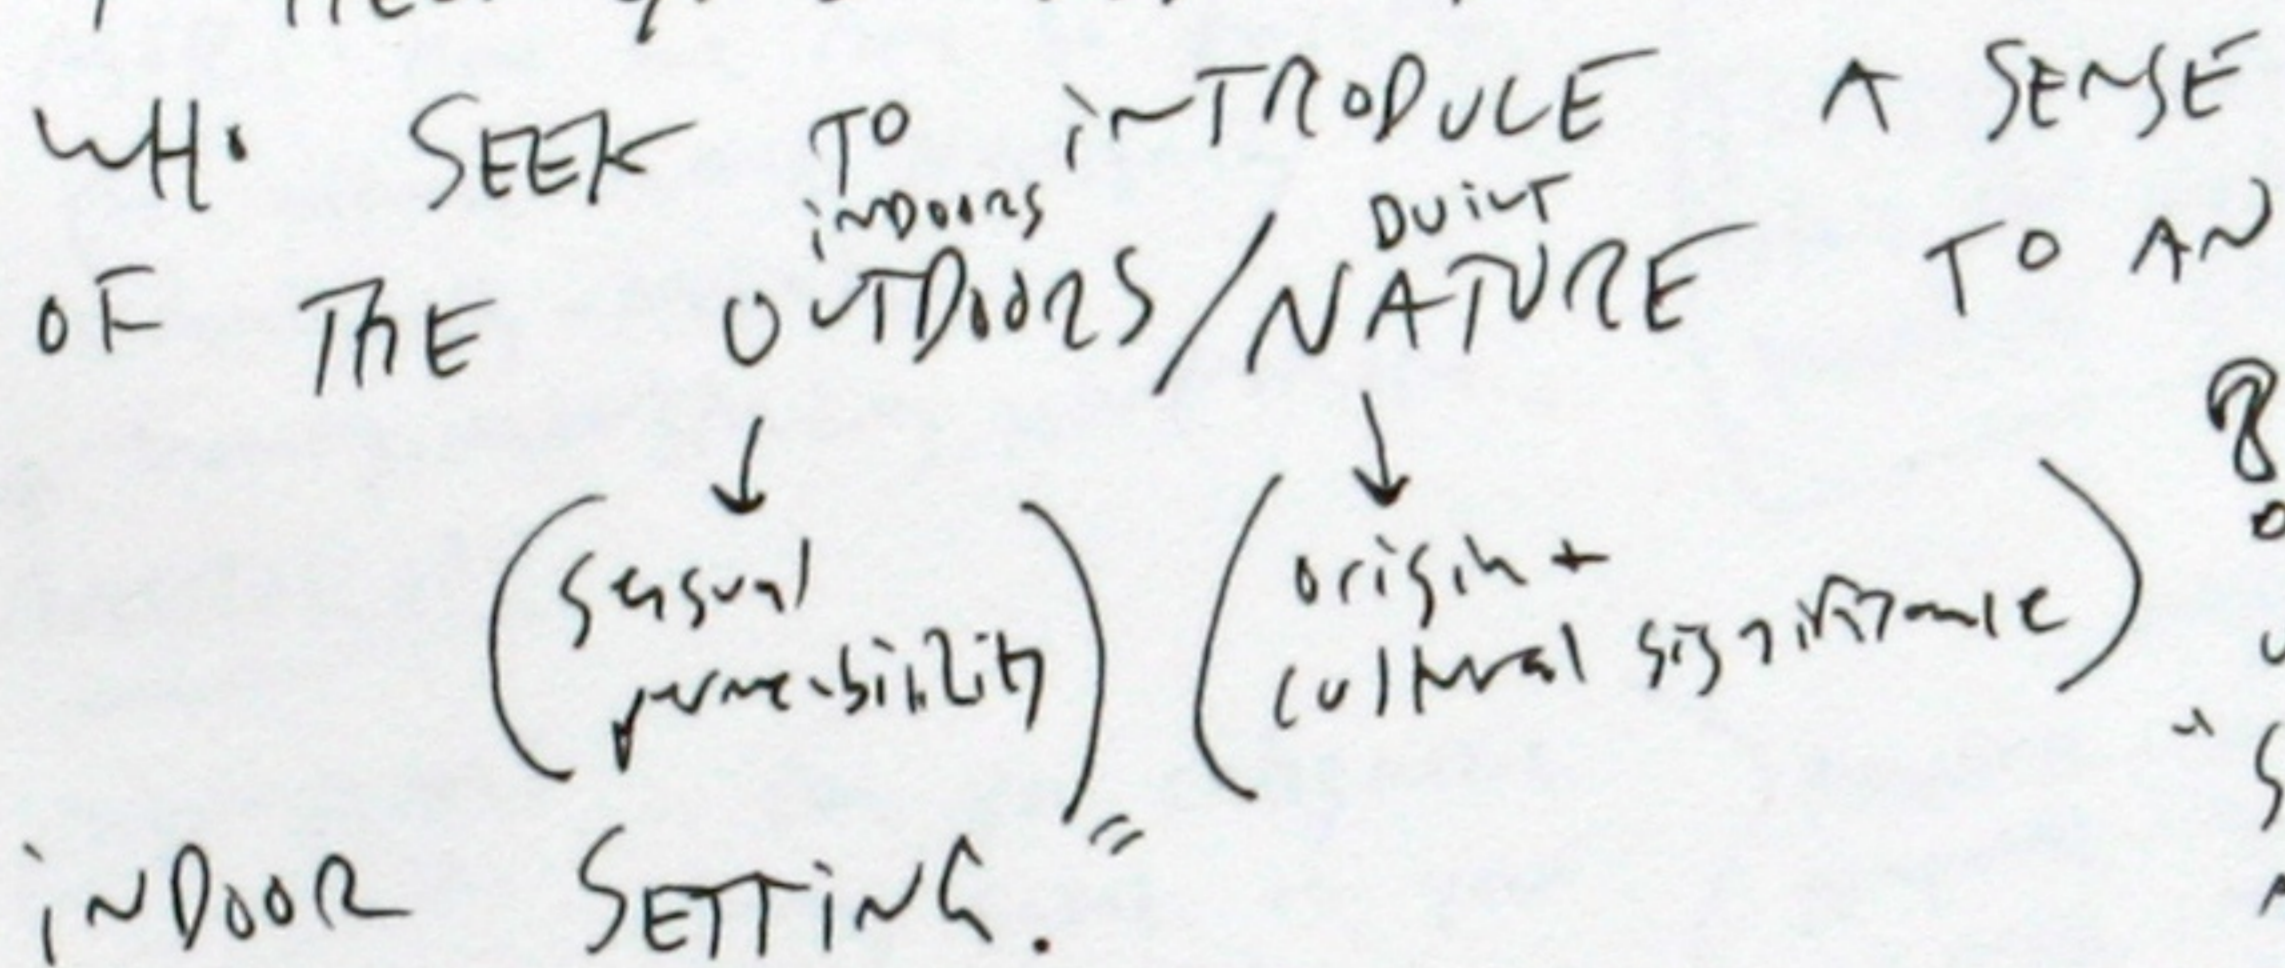 WHO SEEK TO INTRODUCE A SENSE
INDOORS BUILT
OF THE OUTDOORS/NATURE TO AN
↓ ↓
(sensual (origin +
permeability) cultural significance)
INDOOR SETTING."